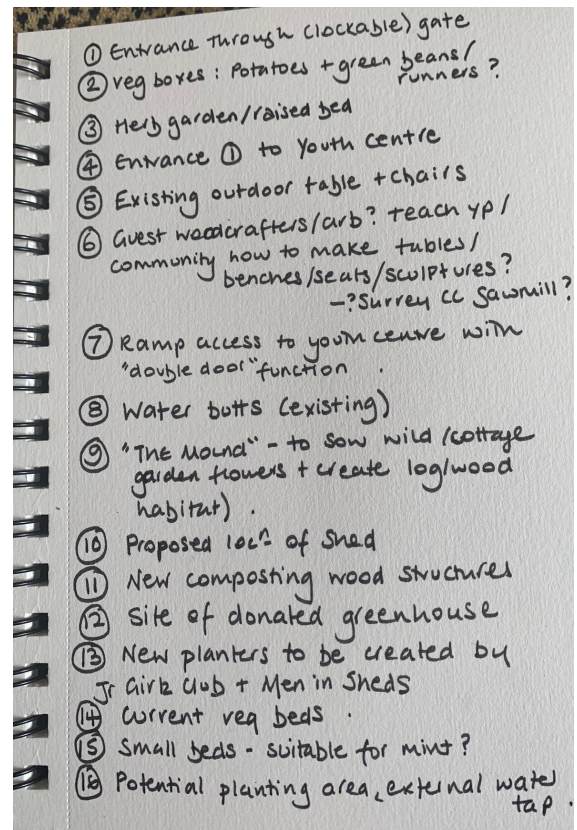 ① Entrance through (lockable) gate
② veg boxes : Potatoes + green beans/
runners ?
③ Herb garden/raised bed
④ Entrance ① to Youth Centre
⑤ Existing outdoor table + chairs
⑥ Guest woodcrafters/arb? teach yp/
community how to make tables/
benches/seats/sculptures?
-?Surrey CC Sawmill?
⑦ Ramp access to youth centre with
"double door" function .
⑧ Water butts (existing)
⑨ "THE MOUND" - to sow wild/cottage
garden flowers + create log/wood
habitat) .
⑩ Proposed locⁿ of Shed
⑪ New composting wood structures
⑫ Site of donated greenhouse
⑬ New planters to be created by
Jr Girls Club + Men in Sheds
⑭ Current veg beds .
⑮ Small beds - suitable for mint ?
⑯ Potential planting area, external water
tap .